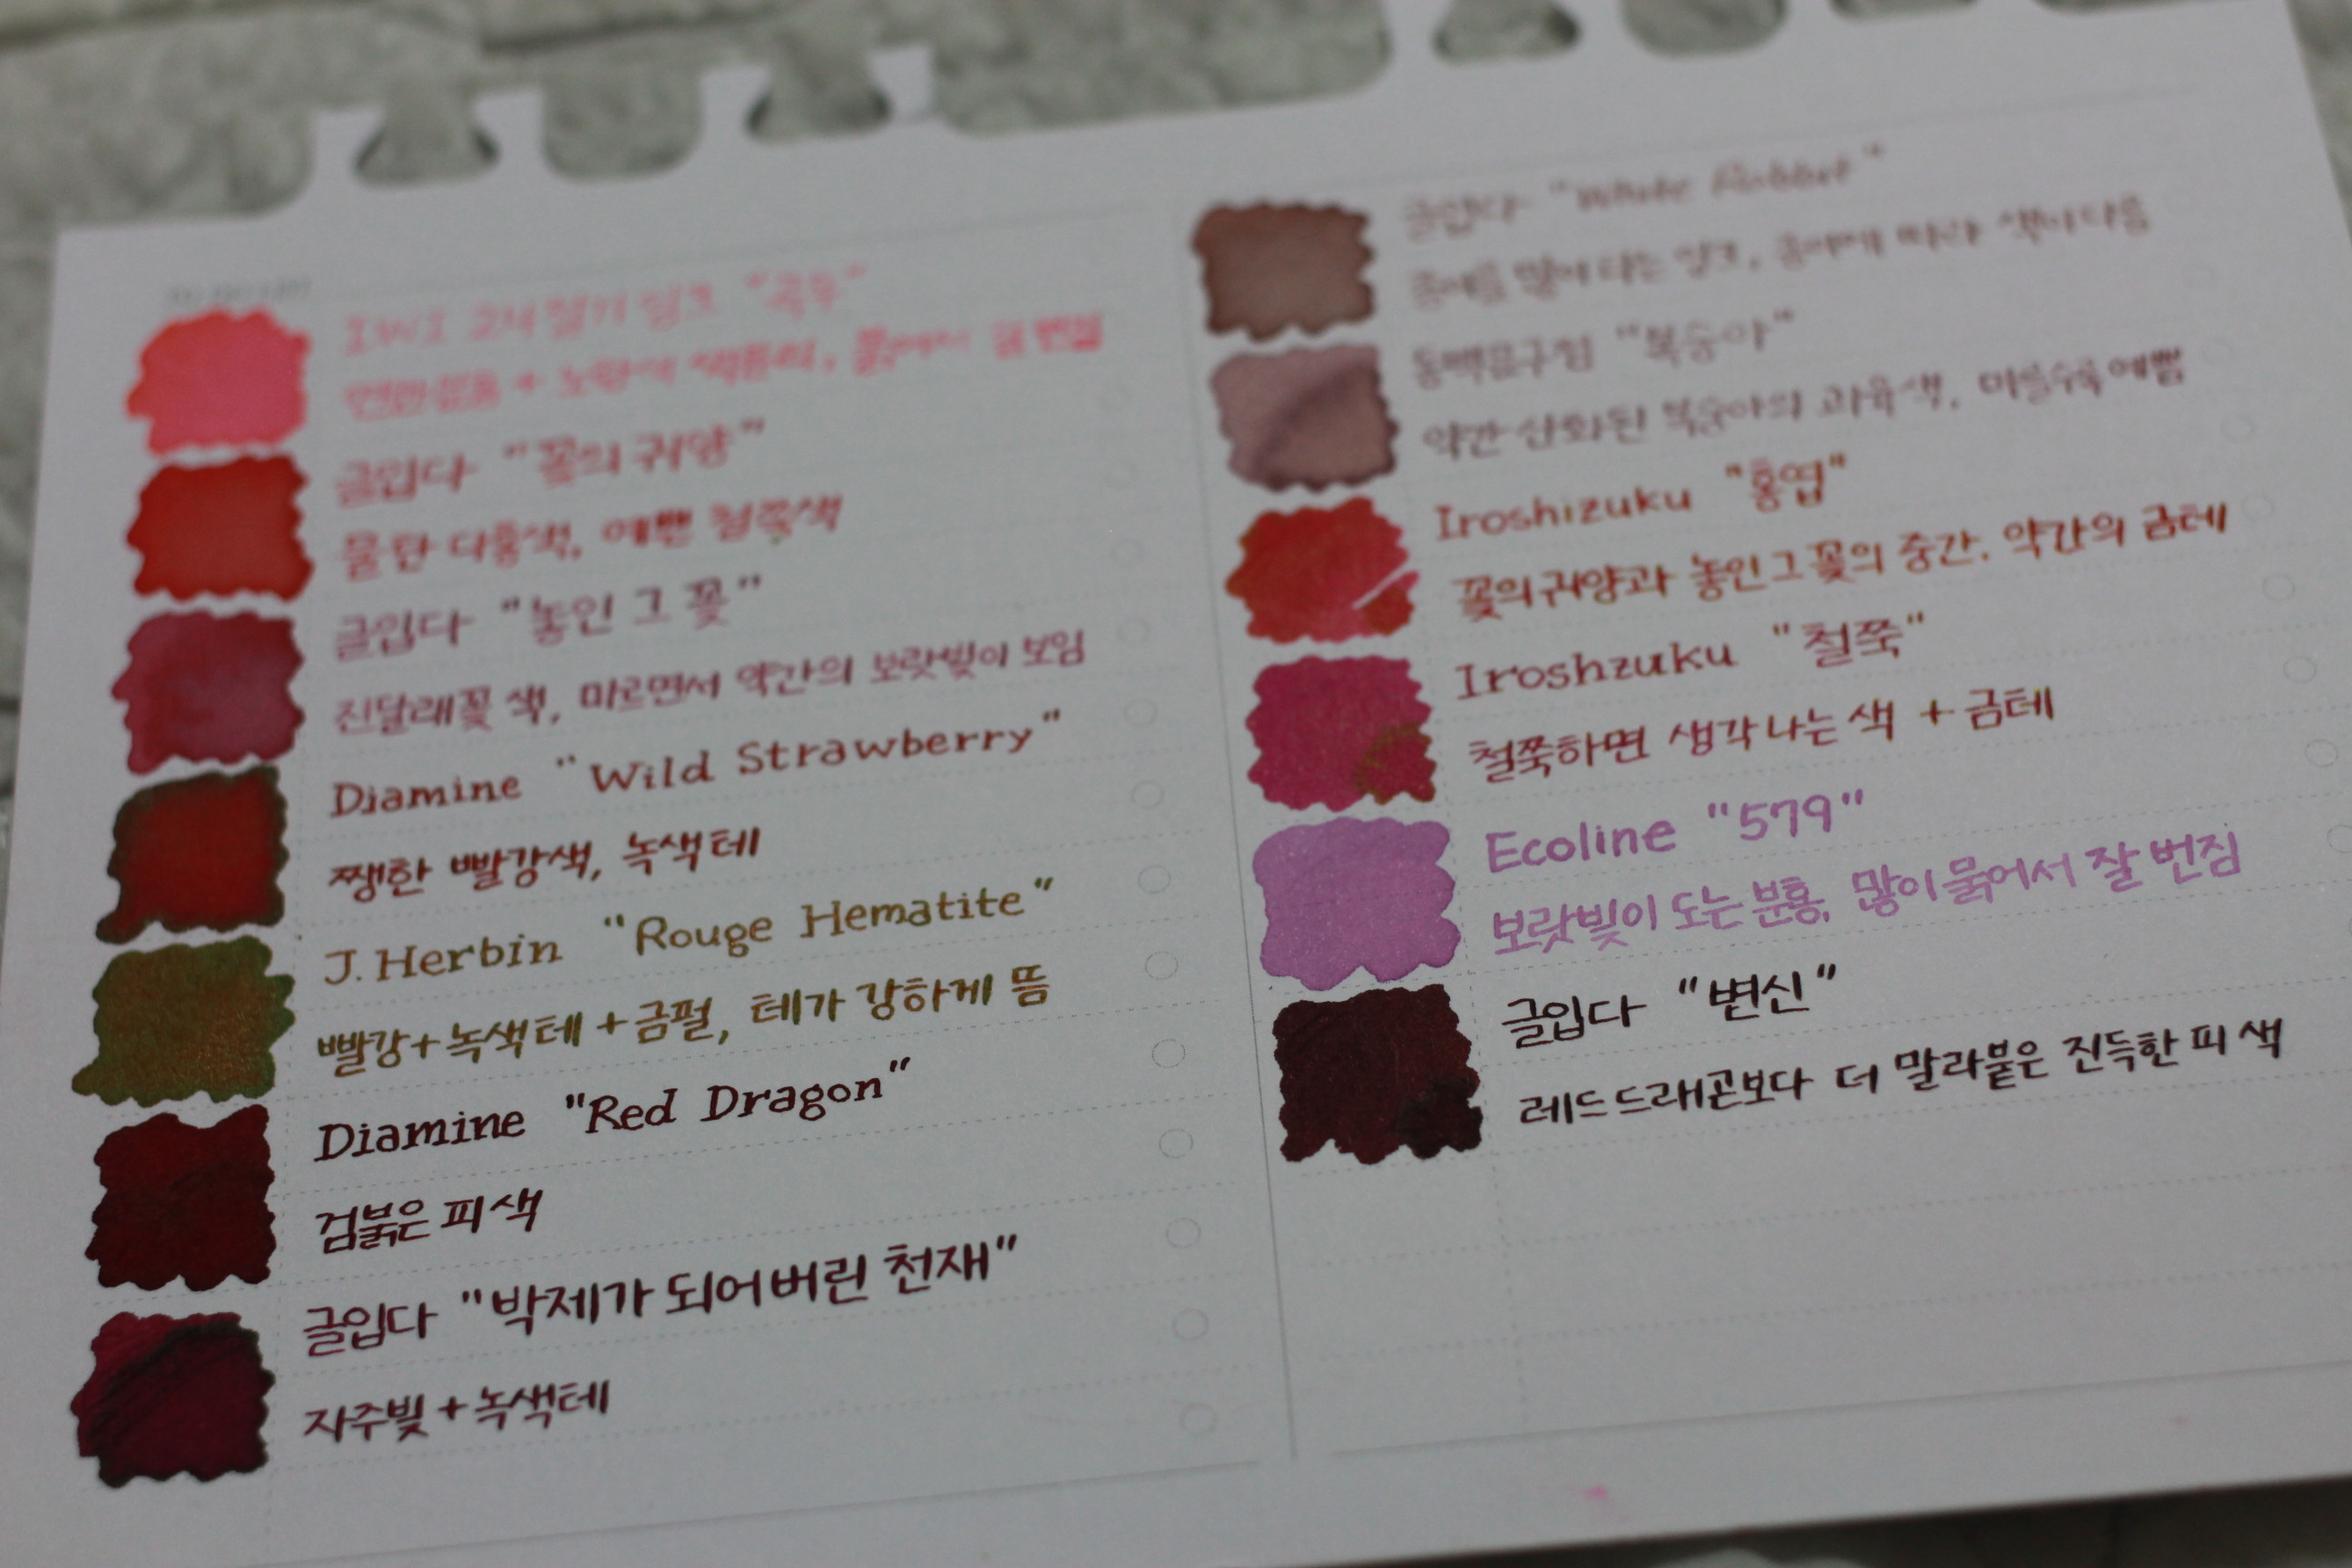 IWI 24절기 잉크 "곡우"
+ 노랑색
글입다 "꽃의 귀양"
물 탄 다홍색, 예쁜 철쭉색
글입다 "놓인 그 꽃"
진달래꽃 색, 마르면서 약간의 보랏빛이 보임
Diamine "Wild Strawberry"
쨍한 빨강색, 녹색테
J. Herbin "Rouge Hematite"
빨강+녹색테+금펄, 테가 강하게 뜸
Diamine "Red Dragon"
검붉은 피색
글입다 "박제가 되어버린 천재"
자주빛+녹색테
글입다 "White Rabbit"
종이를 많이 타는 잉크, 종이에 따라 색이 다름
동백문구점 "복숭아"
약간 산화된 복숭아의 과육색, 마를수록 예쁨
Iroshizuku "홍엽"
꽃의 귀양과 놓인 그 꽃의 중간. 약간의 금테
Iroshzuku "철쭉"
철쭉하면 생각나는 색 + 금테
Ecoline "579"
보랏빛이 도는 분홍, 많이 묽어서 잘 번짐
글입다 "변신"
레드드래곤보다 더 말라붙은 진득한 피 색